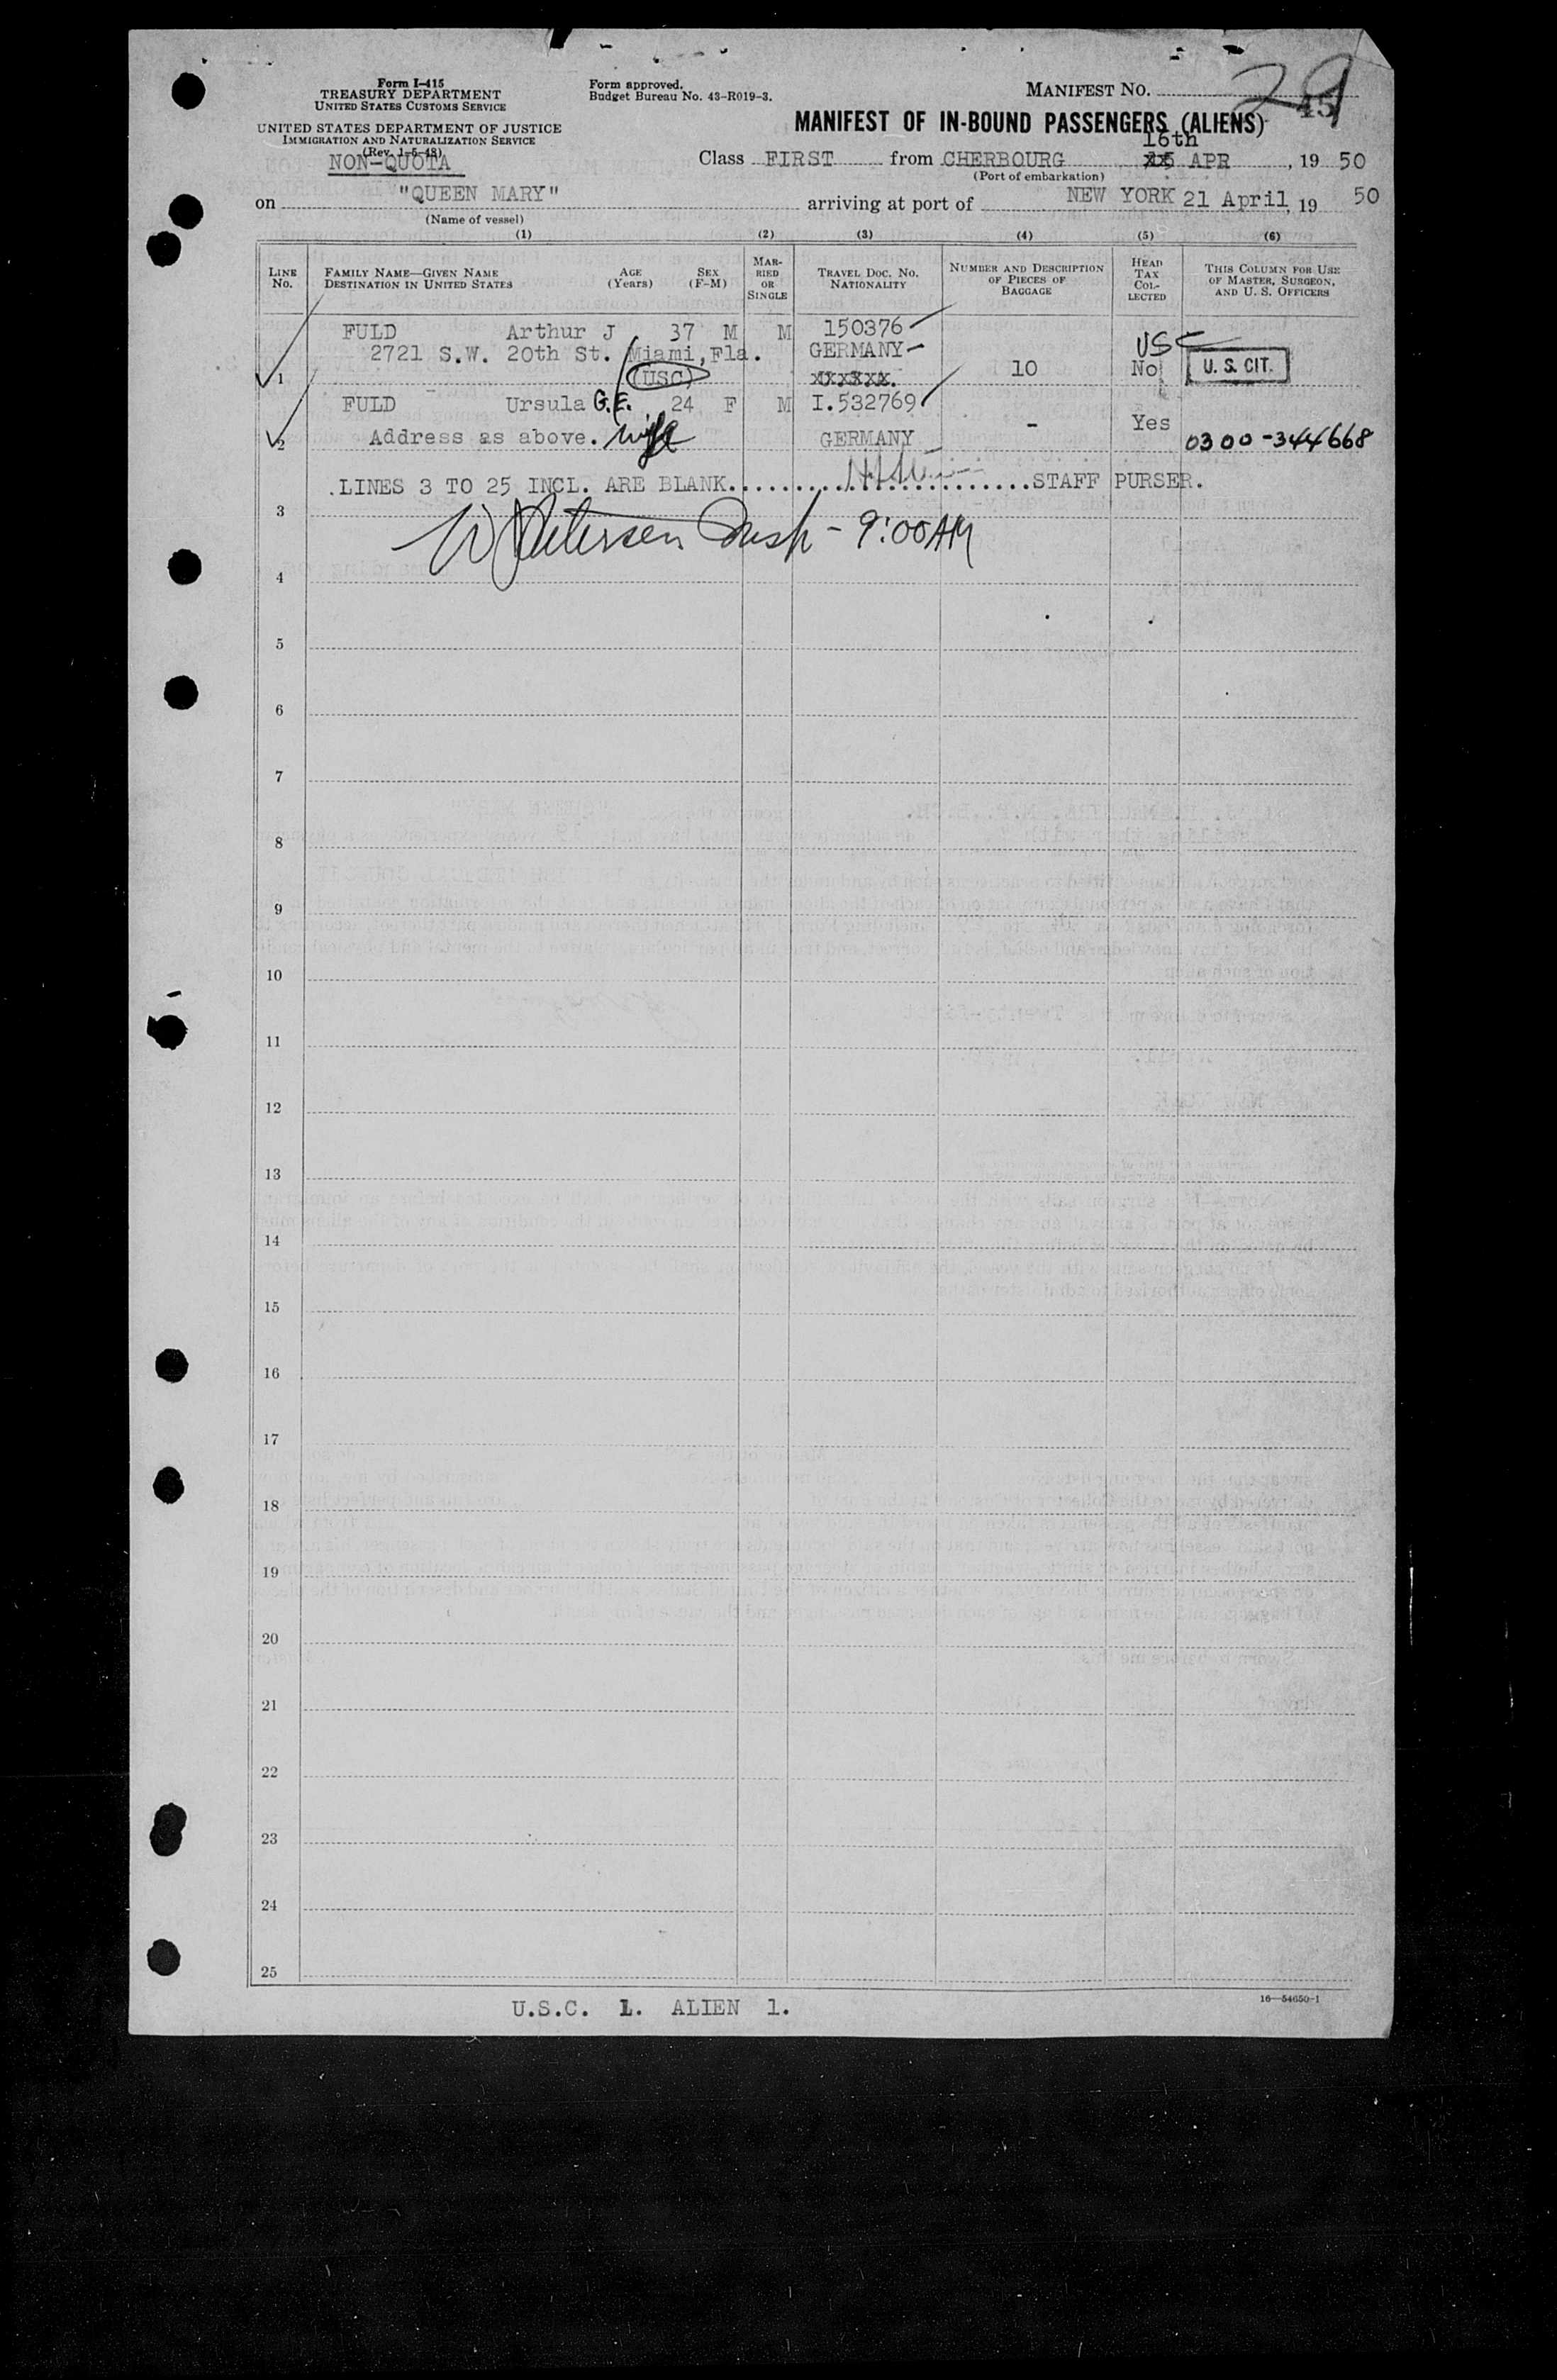 Form I-415
TREASURY DEPARTMENT
UNITED STATES CUSTOMS SERVICE
UNITED STATES DEPARTMENT OF JUSTICE
IMMIGRATION AND NATURALIZATION SERVICE
(Rev. 1-5-48)
NON-QUOTA
Form approved.
Budget Bureau No. 43-R019-3.
MANIFEST NO. 29
45
MANIFEST OF IN-BOUND PASSENGERS (ALIENS)
16th
Class FIRST from CHERBOURG APR , 19 50
(Port of embarkation)
on "QUEEN MARY" arriving at port of NEW YORK 21 April, 19 50
(Name of vessel)
(1) (2) (3) (4) (5) (6)
LINE No.
FAMILY NAME—GIVEN NAME
DESTINATION IN UNITED STATES
AGE (Years)
SEX (F-M)
MARRIED OR SINGLE
TRAVEL DOC. NO.
NATIONALITY
NUMBER AND DESCRIPTION OF PIECES OF BAGGAGE
HEAD TAX COLLECTED
THIS COLUMN FOR USE OF MASTER, SURGEON, AND U. S. OFFICERS
FULD Arthur J 37 M M 150376
2721 S.W. 20th St. Miami, Fla. GERMANY USC
1 (USC) 10 No U. S. CIT.
FULD Ursula G.E. 24 F M I.532769
2 Address as above. wife GERMANY - Yes 0300-344668
.LINES 3 TO 25 INCL. ARE BLANK..............................STAFF PURSER.
3
W Petersen Insp - 9:00AM
4
5
6
7
8
9
10
11
12
13
14
15
16
17
18
19
20
21
22
23
24
25
U.S.C. 1. ALIEN 1.
16—54650-1